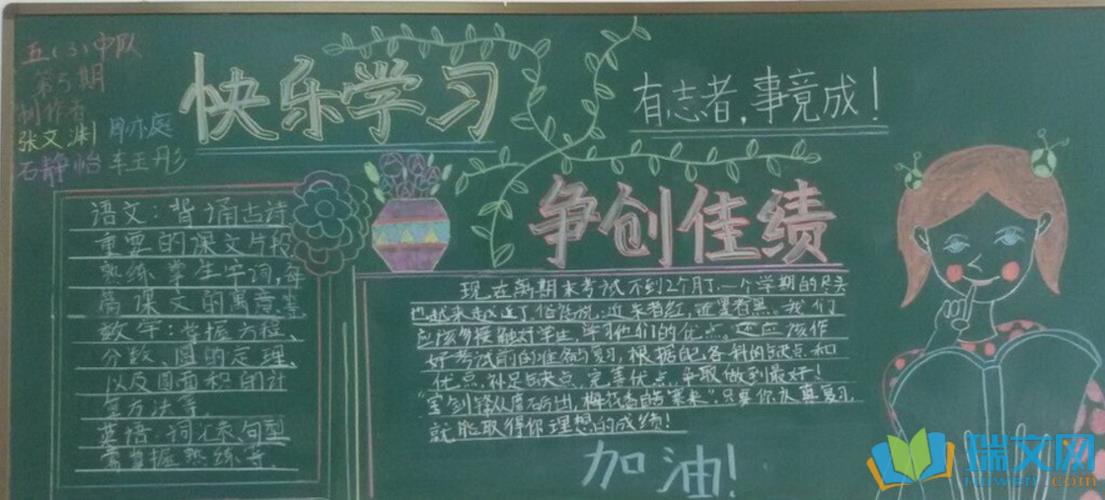 五(3)中队
第5期
制作者
张文渊 周亦庭
石静怡 车玉彤
快乐学习
有志者,事竟成!
争创佳绩
语文:背诵古诗
重要的课文片段
熟练掌生字词,每
篇课文的寓意等
数学:掌握方程、
分数、圆的定理、
以及圆面积的计
算方法等.
英语:词汇表句型
需掌握熟练等.
现在离期末考试不到2个月了.一个学期的
也越来越近了.俗话说,近朱者红,近墨者黑.我们
应该多接触好学生,学习他们的优点.还应该作
好考试前的准备与复习,根据自己各科的缺点和
优点.补足缺点,完善优点,争取做到最好!
“宝剑锋从磨砺出,梅花香自苦寒来”.只要你认真复习
就能取得你理想的成绩!
加油!
瑞文网
ruiwen.com